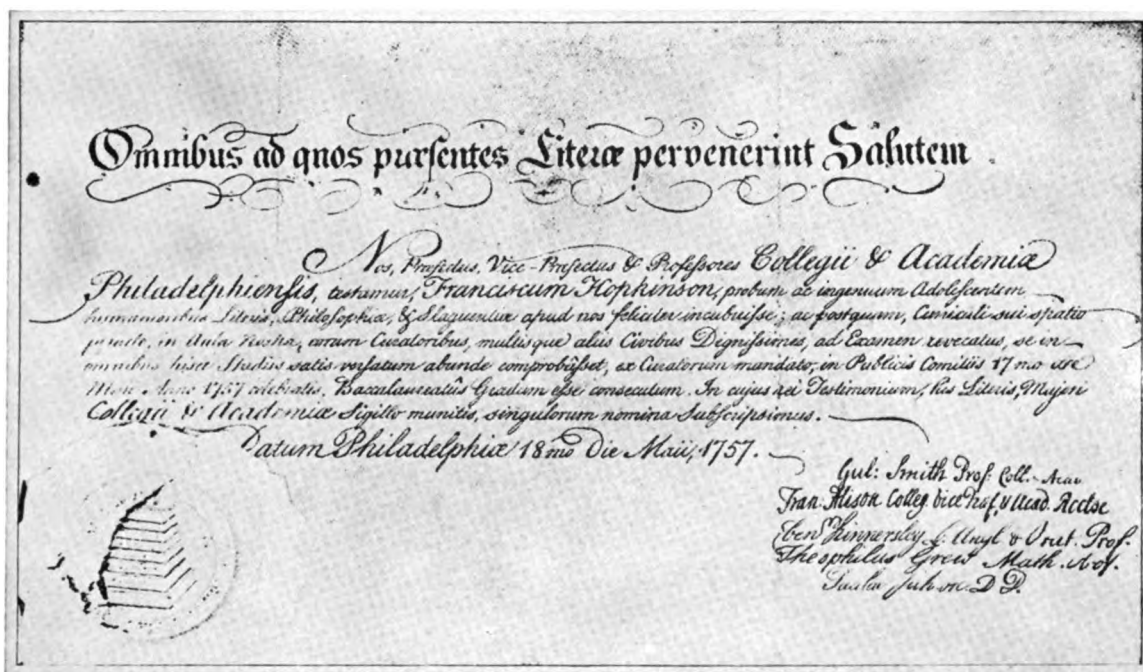 Omnibus ad quos præsentes Literæ pervenerint Salutem
Nos, Præfectus, Vice-Præfectus & Professores Collegii & Academiæ
Philadelphiensis, testamur, Franciscum Hopkinson, probum ac ingenuum Adolescentem
humanioribus Literis, Philosophiæ, & Eloquentiæ apud nos feliciter incubuisse; ac postquam, Curriculi sui spatio
in Aula nostra, coram Curatoribus, multisque aliis Civibus Dignissimis, ad Examen revocatus, se in
omnibus hisce Studiis satis versatum abunde comprobâsset, ex Curatorum mandato, in Publicis Comitiis 17mo die
Maii Anno 1757 celebratis, Baccalaureatûs Gradum esse consecutum. In cujus rei Testimonium, his Literis, Majori
Collegii & Academiæ Sigillo munitis, singulorum nomina Subscripsimus.
Datum Philadelphiæ 18mo Die Maii, 1757.
Gul: Smith Præf. Coll. & Acad
Fran: Alison Colleg. Vice Præf. & Acad. Rector
Eben.r Kinnersley L. Angl & Orat. Prof.
Theophilus Grew Math. Prof.
D D.